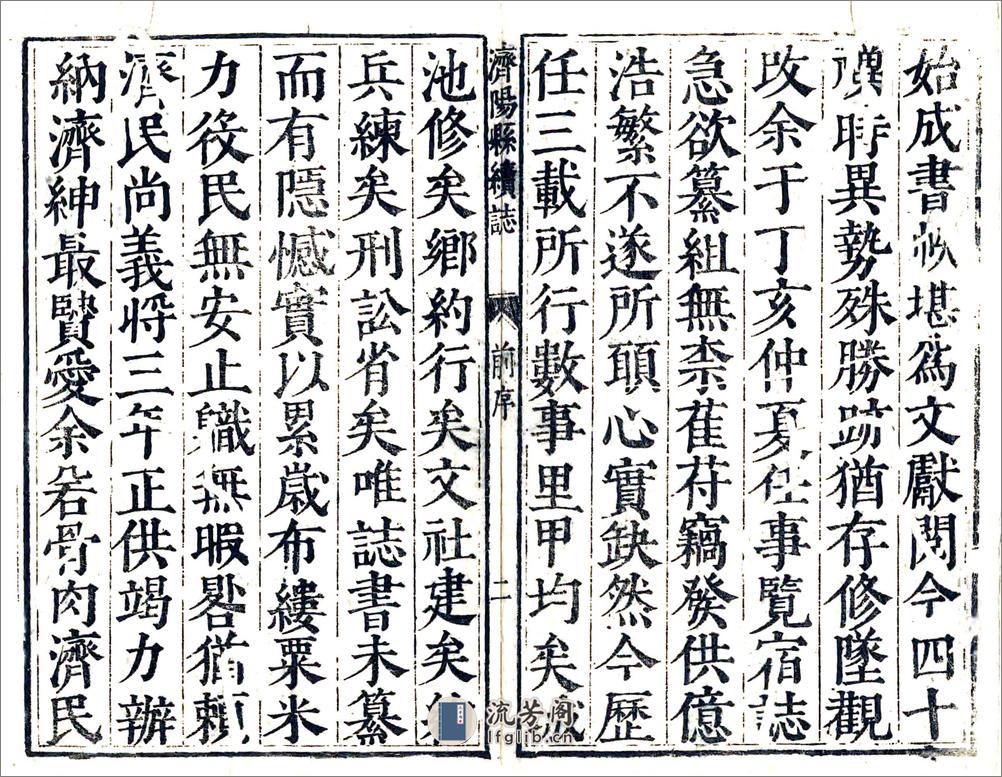 始成書堪爲文獻閱今四十
禩時異勢殊勝跡猶存修墜觀
改余于丁亥仲夏任事覽宿誌
急欲纂組無柰萑苻竊發供億
浩繁不遂所願心實缺然今歷
任三載所行數事里甲均矣城
濟陽縣續誌 前序 二
池修矣鄉約行矣文社建矣
兵練矣刑訟省矣唯誌書未纂
而有隱憾實以累歲布縷粟米
力役民無安止職無暇晷猶賴
濟民尚義將三年正供竭力辦
納濟紳最賢愛余若骨肉濟民
流芳阁
lfglib.cn